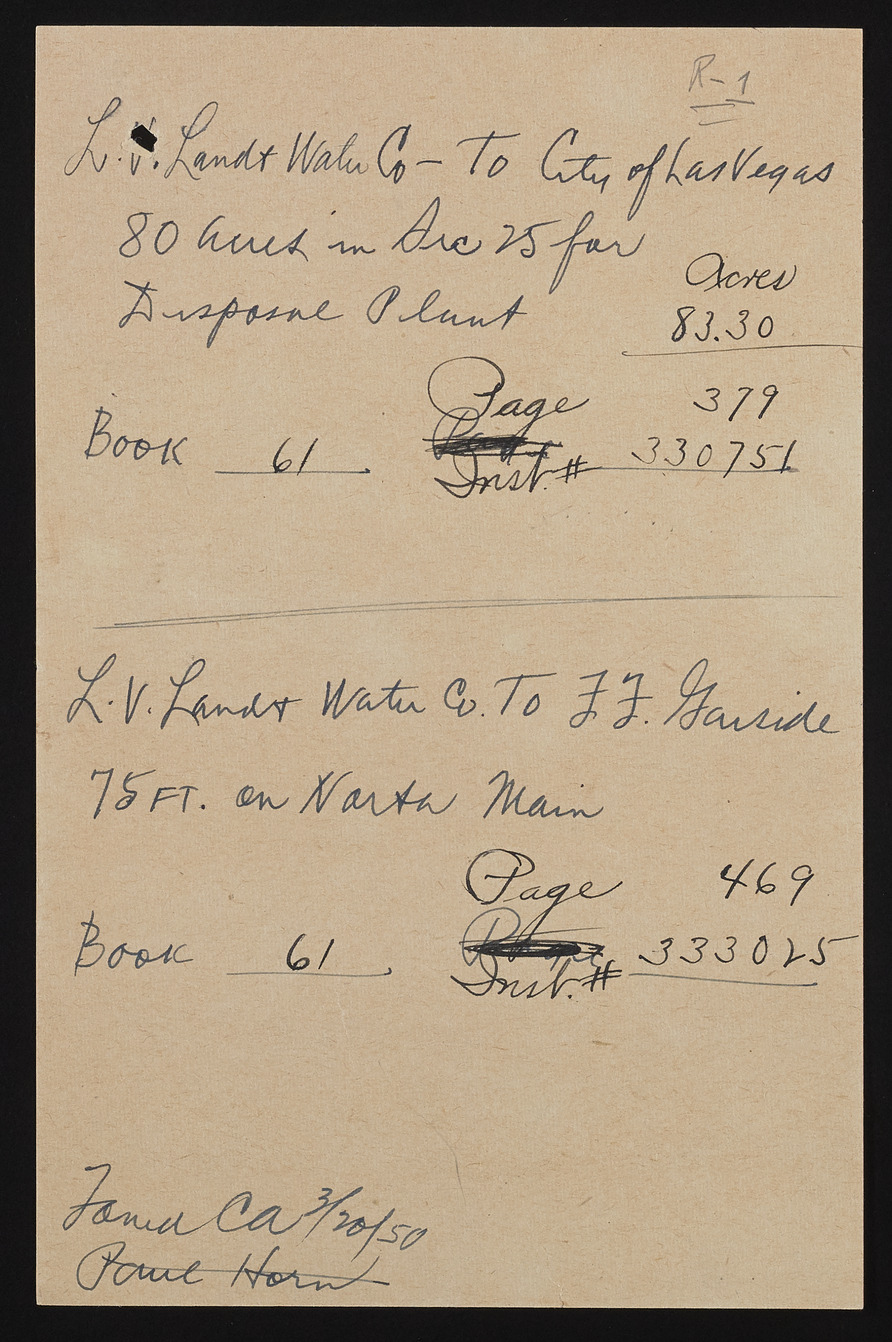 R-1
L.V. Land & Water Co - To City of Las Vegas
80 acres in Sec 25 for
Acres
Disposal Plant 83.30
Page 379
Book 61. Inst.# 330751
L.V. Land & Water Co. To F.F. Garside
75 FT. on North Main
Page 469
Book 61. Inst.# 333025
CA 3/20/50
Paul Horn